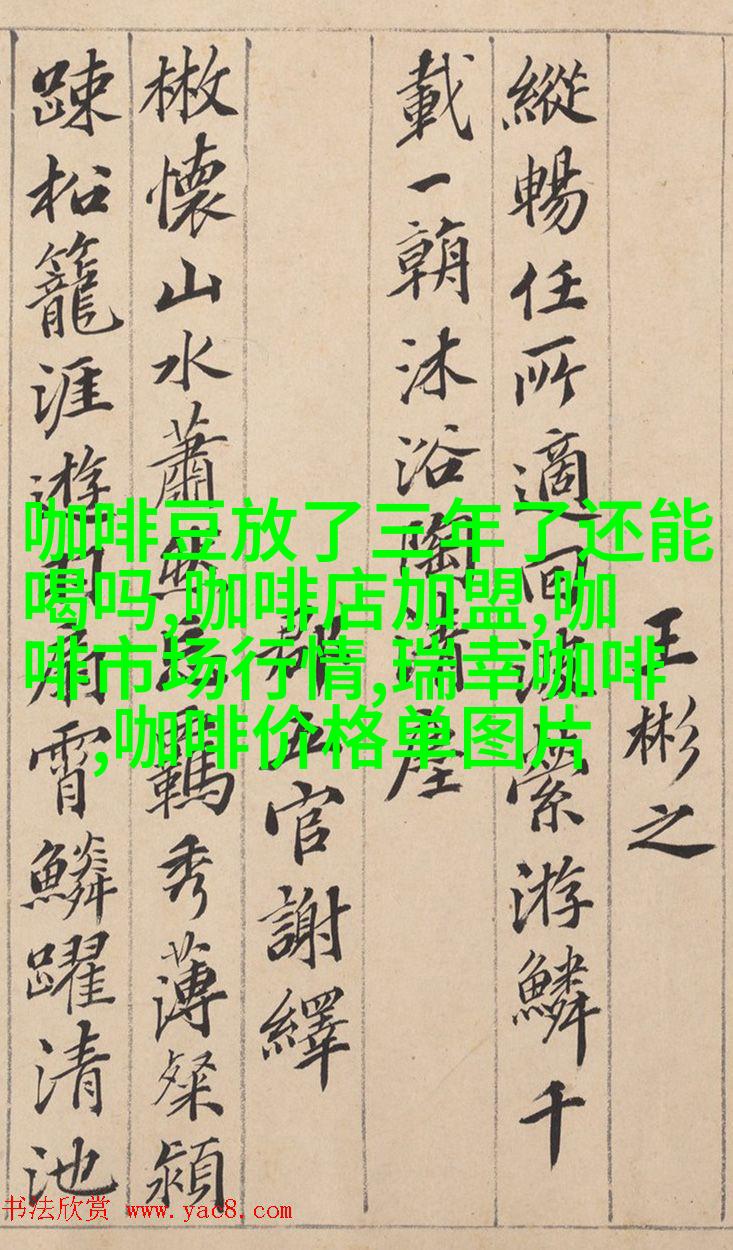 王彬之
縱暢任所適回波縈游鱗千
載一朝沐浴陶清塵
郡五官謝繹
㪚懷山水蕭然忘羈秀薄粲穎
踈松籠涯遊羽扇霄鱗躍清池
咖啡豆放了三年了还能
喝吗,咖啡店加盟,咖
啡市场行情,瑞幸咖啡
,咖啡价格单图片
书法欣赏 www.yac8.com